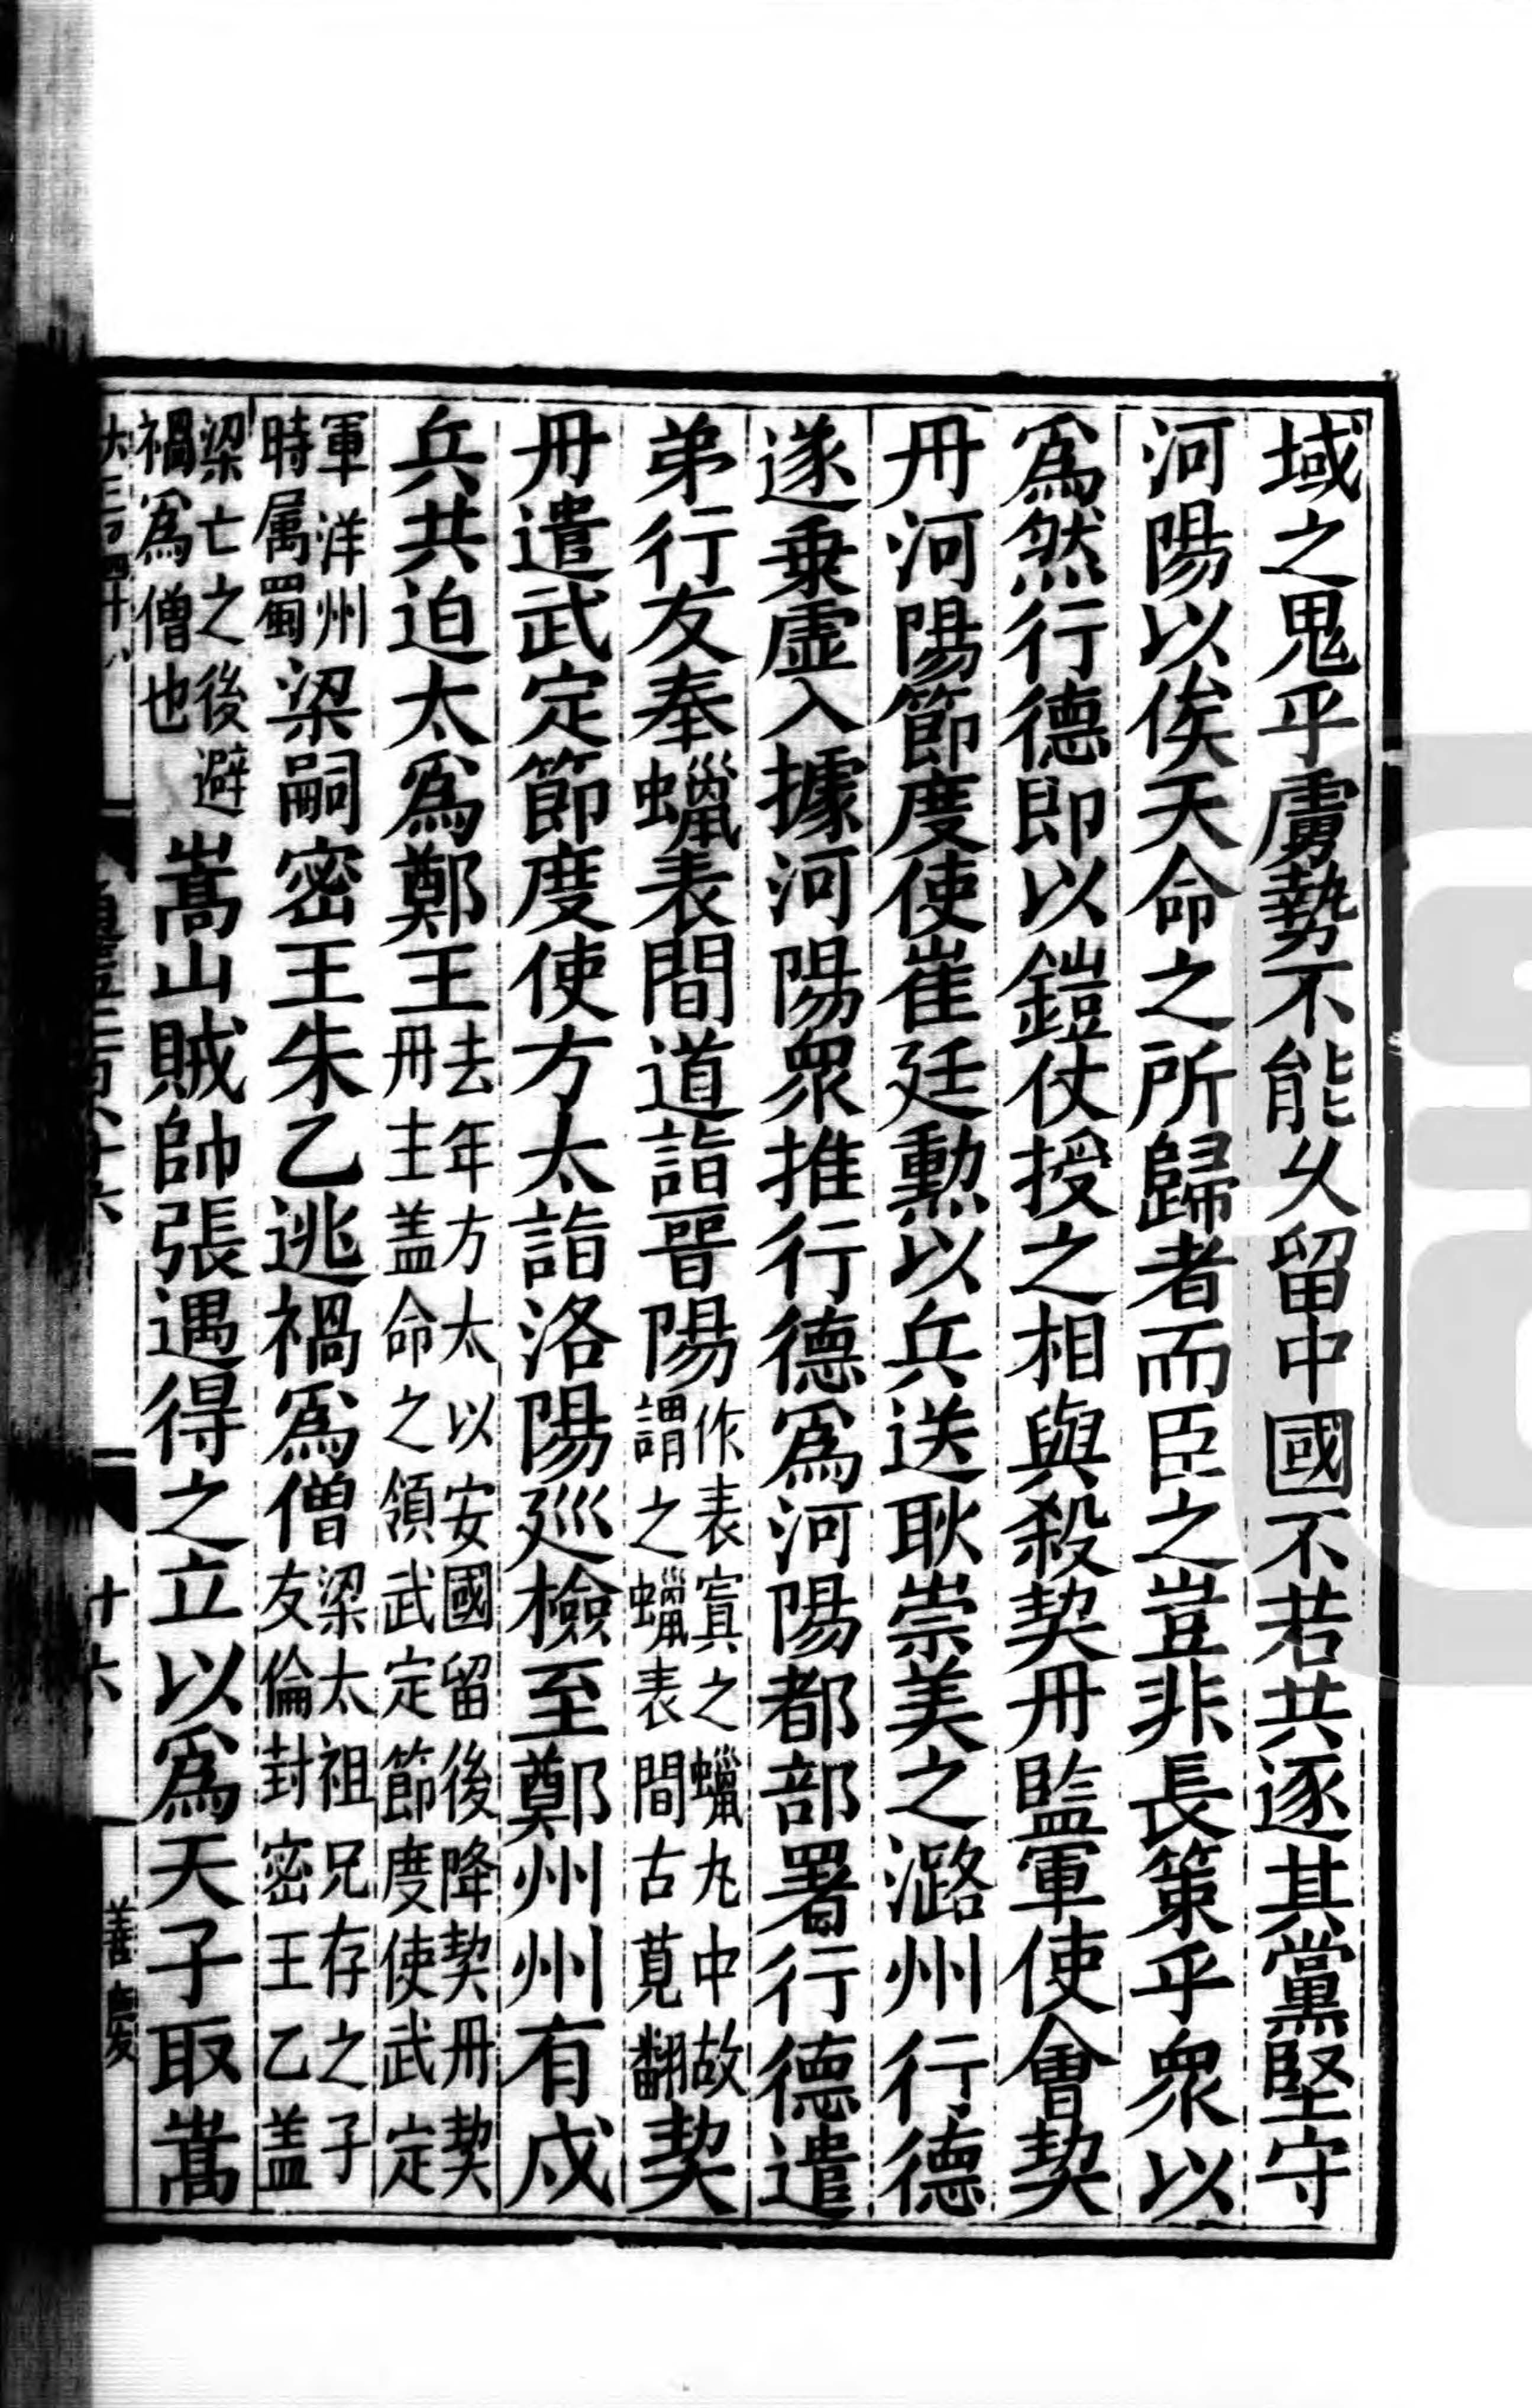 域之鬼乎虜勢不能乆留中國不若共逐其黨堅守
河陽以俟天命之所歸者而臣之豈非長策乎衆以
爲然行德即以鎧仗授之相與殺契丹監軍使會契
丹河陽節度使崔廷勲以兵送耿崇美之潞州行德
遂乗虚入據河陽衆推行德爲河陽都部署行德遣
弟行友奉蠟表間道詣晉陽作表寘之蠟丸中故謂之蠟表間古莧翻契
丹遣武定節度使方太詣洛陽巡檢至鄭州州有戍
兵共迫太爲鄭王去年方太以安國留後降契丹契丹主盖命之領武定節度使武定
軍洋州時属蜀梁嗣密王朱乙逃禍爲僧梁太祖兄存之子友倫封密王乙盖
梁亡之後避禍爲僧也嵩山賊帥張遇得之立以爲天子取嵩
十六